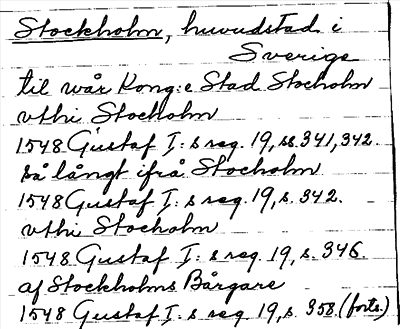 Stockholm, huvudstad i
Sverige
til wår Kong:e Stad Stocholm
vthi Stocholm
1548 Gustaf I:s reg. 19, ss. 341, 342.
så långt ifrå Stocholm
1548 Gustaf I:s reg. 19, s. 342.
vthi Stocholm
1548 Gustaf I:s reg. 19, s. 346.
af Stockholms Bårgare
1548 Gustaf I:s reg. 19, s. 358. (forts.)